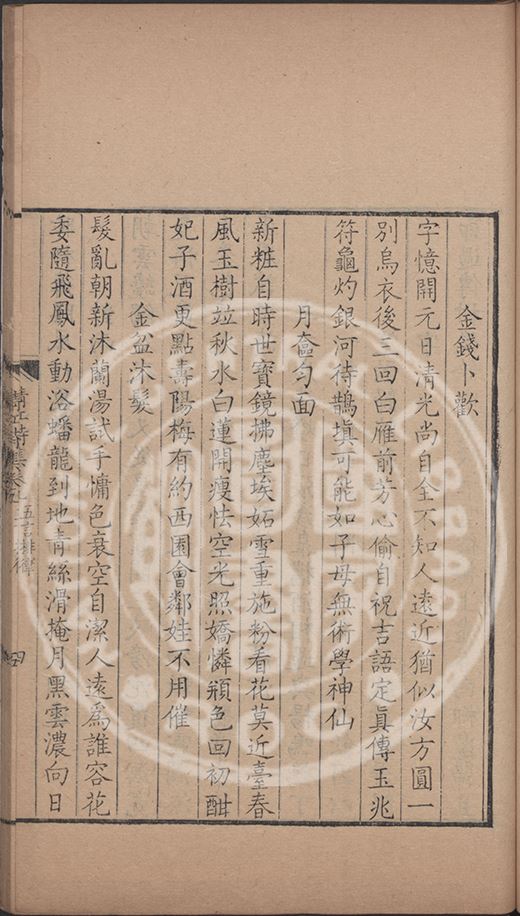 金錢卜歡
字憶開元日清光尚自全不知人遠近猶似汝方圓一
別烏衣後三回白雁前芳心偷自祝吉語定眞傳玉兆
符龜灼銀河待鵲塡可能如子母無術學神仙
月奩勻面
新粧自時世寶鏡拂塵埃妬雪重施粉看花莫近臺春
風玉樹竝秋水白蓮開瘦怯空光照嬌憐頳色回初酣
妃子酒更點壽陽梅有約西園會鄰娃不用催
金盆沐髮
髮亂朝新沐蘭湯試手慵色衰空自潔人遠爲誰容花
委隨飛鳳水動浴蟠龍到地青絲滑掩月黑雲濃向日
清江詩集卷九
五言排律
四